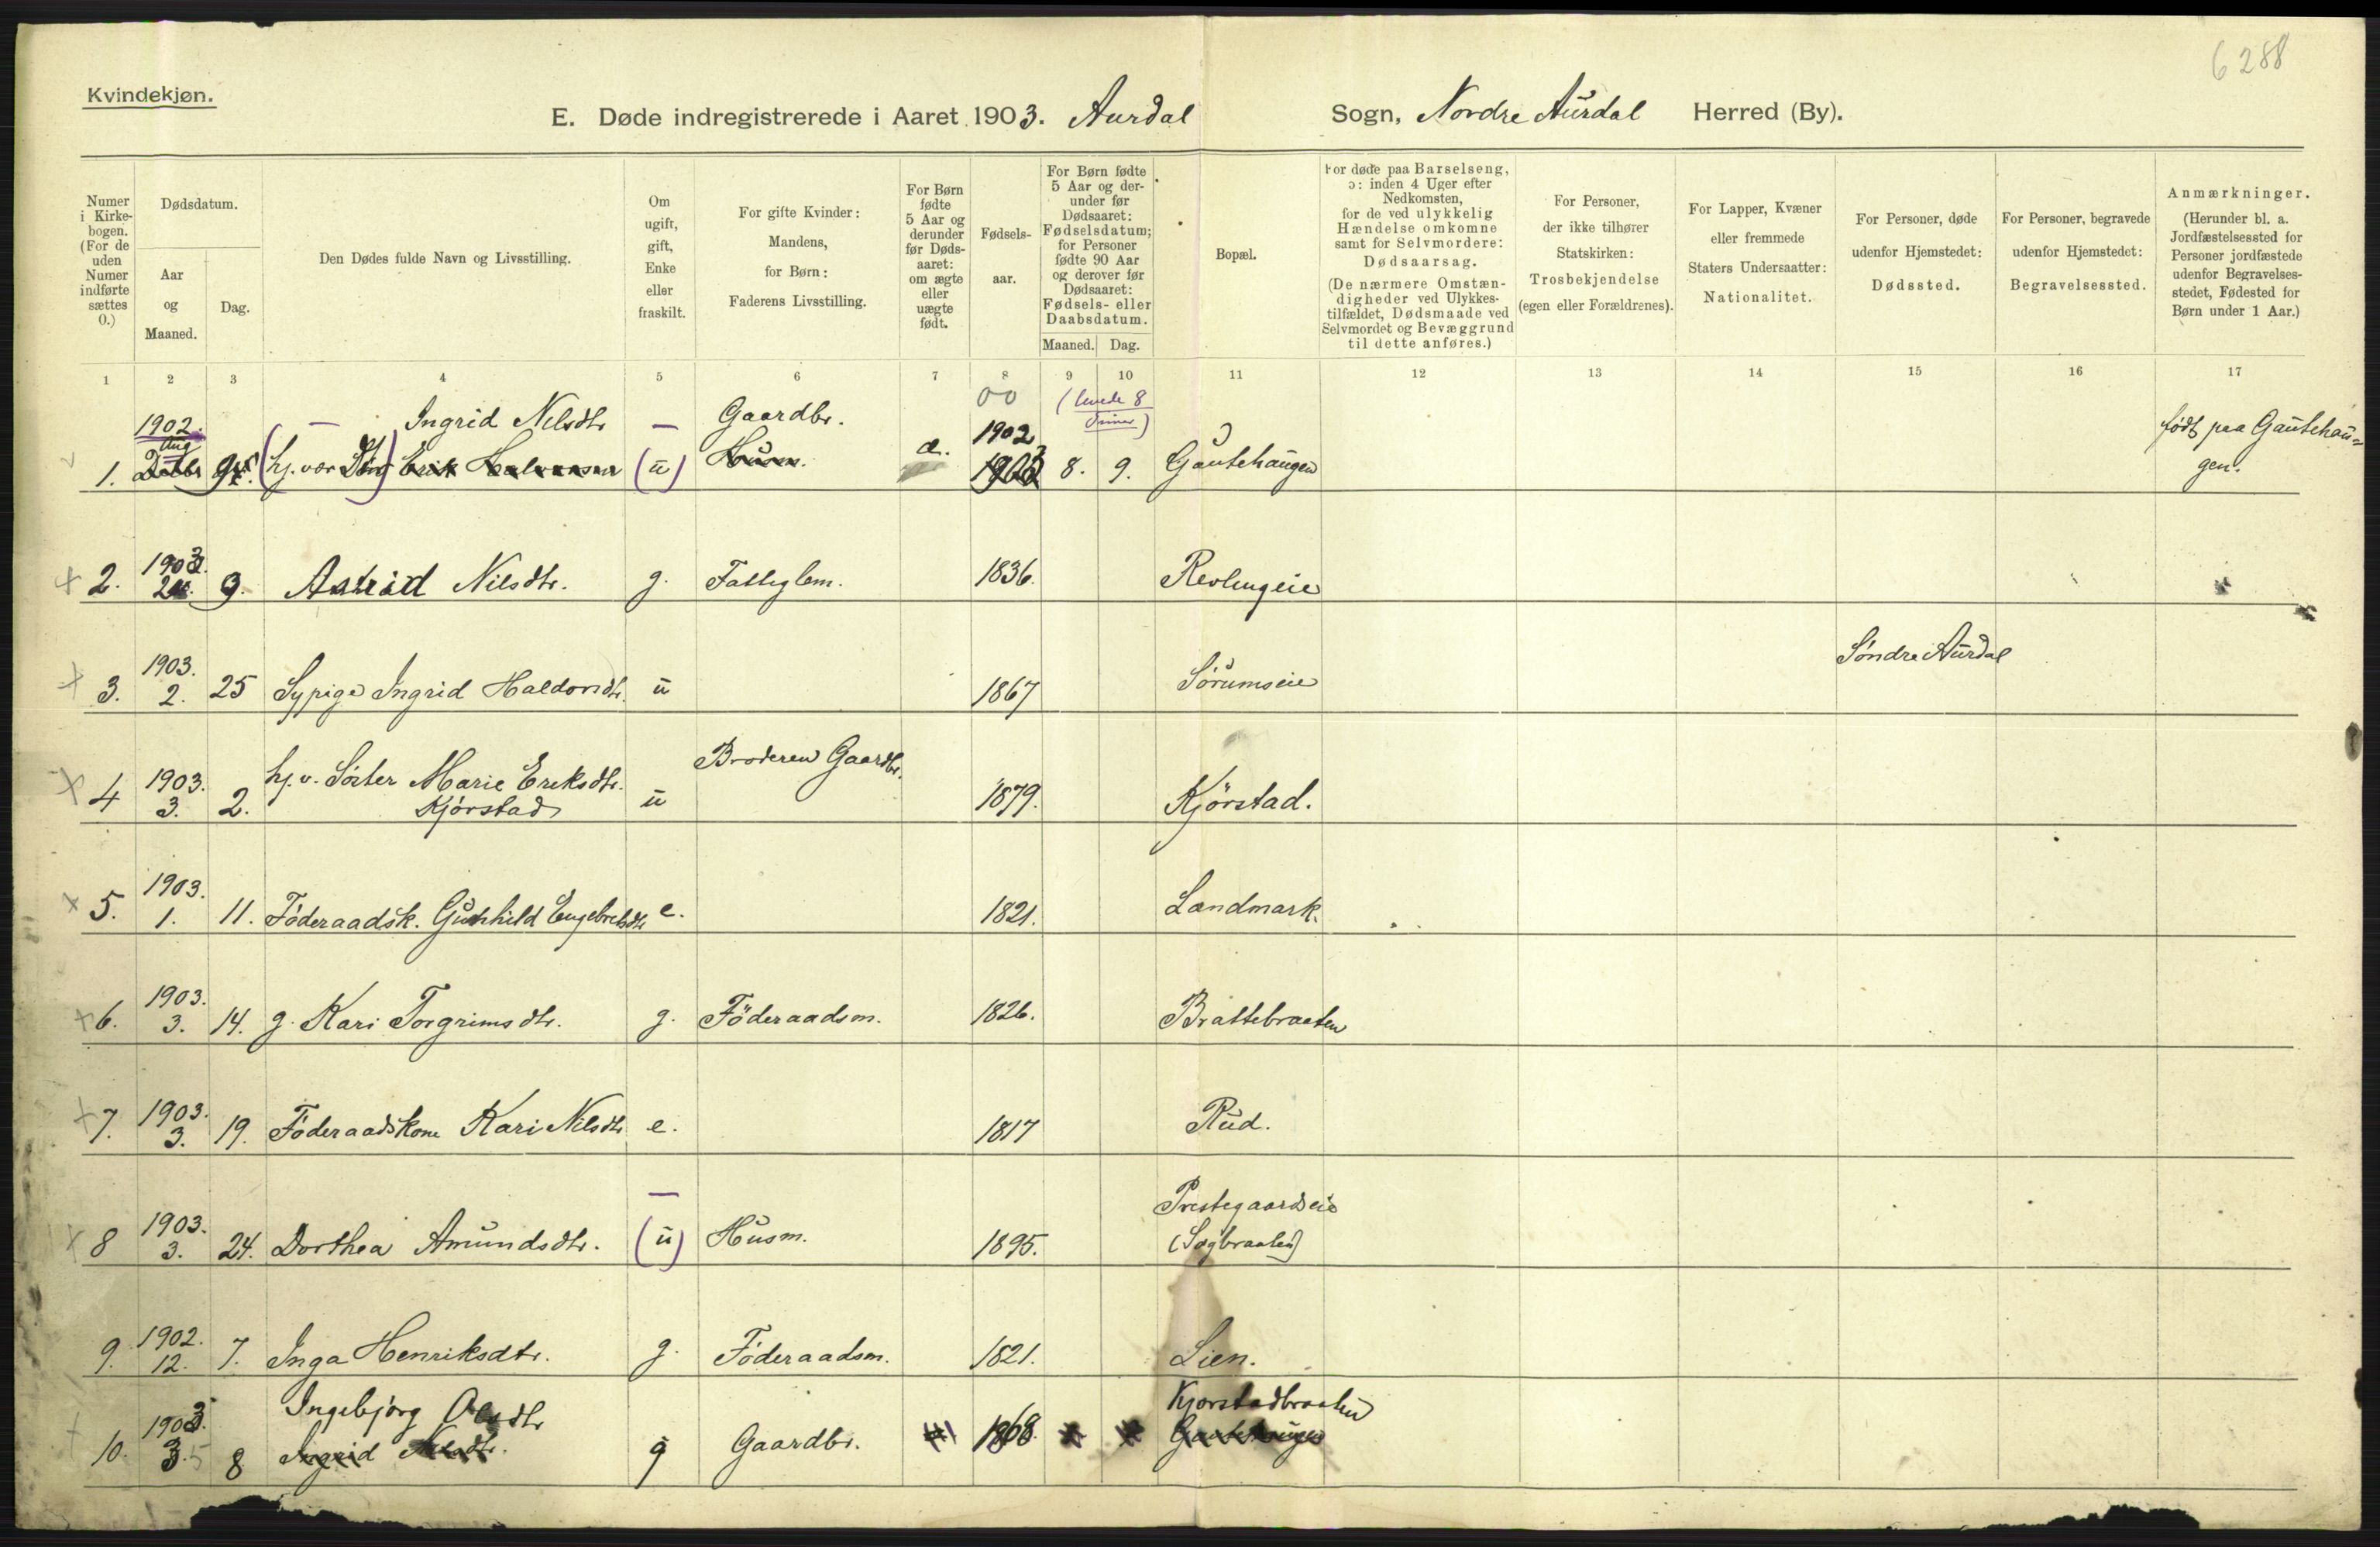 6288
Kvindekjøn.
E. Døde indregistrerede i Aaret 1903. Aurdal Sogn, Nordre Aurdal Herred (By).
Numer i Kirkebogen. (For de uden Numer indførte sættes 0.)
Dødsdatum.
Aar og Maaned.
Dag.
Den Dødes fulde Navn og Livsstilling.
Om ugift, gift, Enke eller fraskilt.
For gifte Kvinder: Mandens, for Børn: Faderens Livsstilling.
For Børn fødte 5 Aar og derunder før Dødsaaret: om ægte eller uægte født.
Fødsels-aar.
For Børn fødte 5 Aar og derunder før Dødsaaret: Fødselsdatum; for Personer fødte 90 Aar og derover før Dødsaaret: Fødsels- eller Daabsdatum.
Maaned. Dag.
Bopæl.
For døde paa Barselseng, ɔ: inden 4 Uger efter Nedkomsten, for de ved ulykkelig Hændelse omkomne samt for Selvmordere: Dødsaarsag.
(De nærmere Omstændigheder ved Ulykkestilfældet, Dødsmaade ved Selvmordet og Bevæggrund til dette anføres.)
For Personer, der ikke tilhører Statskirken: Trosbekjendelse (egen eller Forældrenes).
For Lapper, Kvæner eller fremmede Staters Undersaatter: Nationalitet.
For Personer, døde udenfor Hjemstedet: Dødssted.
For Personer, begravede udenfor Hjemstedet: Begravelsessted.
Anmærkninger.
(Herunder bl. a. Jordfæstelsessted for Personer jordfæstede udenfor Begravelsesstedet, Fødested for Børn under 1 Aar.)
1 2 3 4 5 6 7 8 9 10 11 12 13 14 15 16 17
00 (levede 8 Timer)
1902. Aug Ingrid Nilsdtr — Gaardbr. 1902 født paa Gautehau=
1. 9 (hj. vor (u) Husm. æ. 1903 8. 9. Gautehaugen gen.
2. 1903. 2. 9. Astrid Nilsdtr. g. Fattiglem. 1836. Revlingeie
3. 1903. 2. 25 Sypige Ingrid Haldorsdtr. u 1867 Sörumseie Søndre Aurdal
4 1903. 3. 2. hj. v. Söster Marie Eriksdtr. Kjörstad u Broderen Gaardbr. 1879. Kjörstad.
5. 1903. 1. 11. Föderaadsk. Gunhild Engebretsdtr e. 1821. Landmark.
6. 1903. 3. 14. g. Kari Torgrimsdtr. g. Föderaadsm. 1826. Brattebraaten
7. 1903. 3. 19. Föderaadskone Kari Nilsdtr e. 1817 Rud.
8 1903. 3. 24. Dorthea Amundsdtr. (u) — Husm. 1895. Prestegaardseie (Sagbraaten)
9. 1902. 12. 7. Inga Henriksdtr. g. Föderaadsm. 1821. Lien.
10. 1903. 3. 8 Ingebjörg Olsdtr g Gaardbr. 1868. Kjørstadbraaten
Ingrid Nilsdtr. Gautehaugen